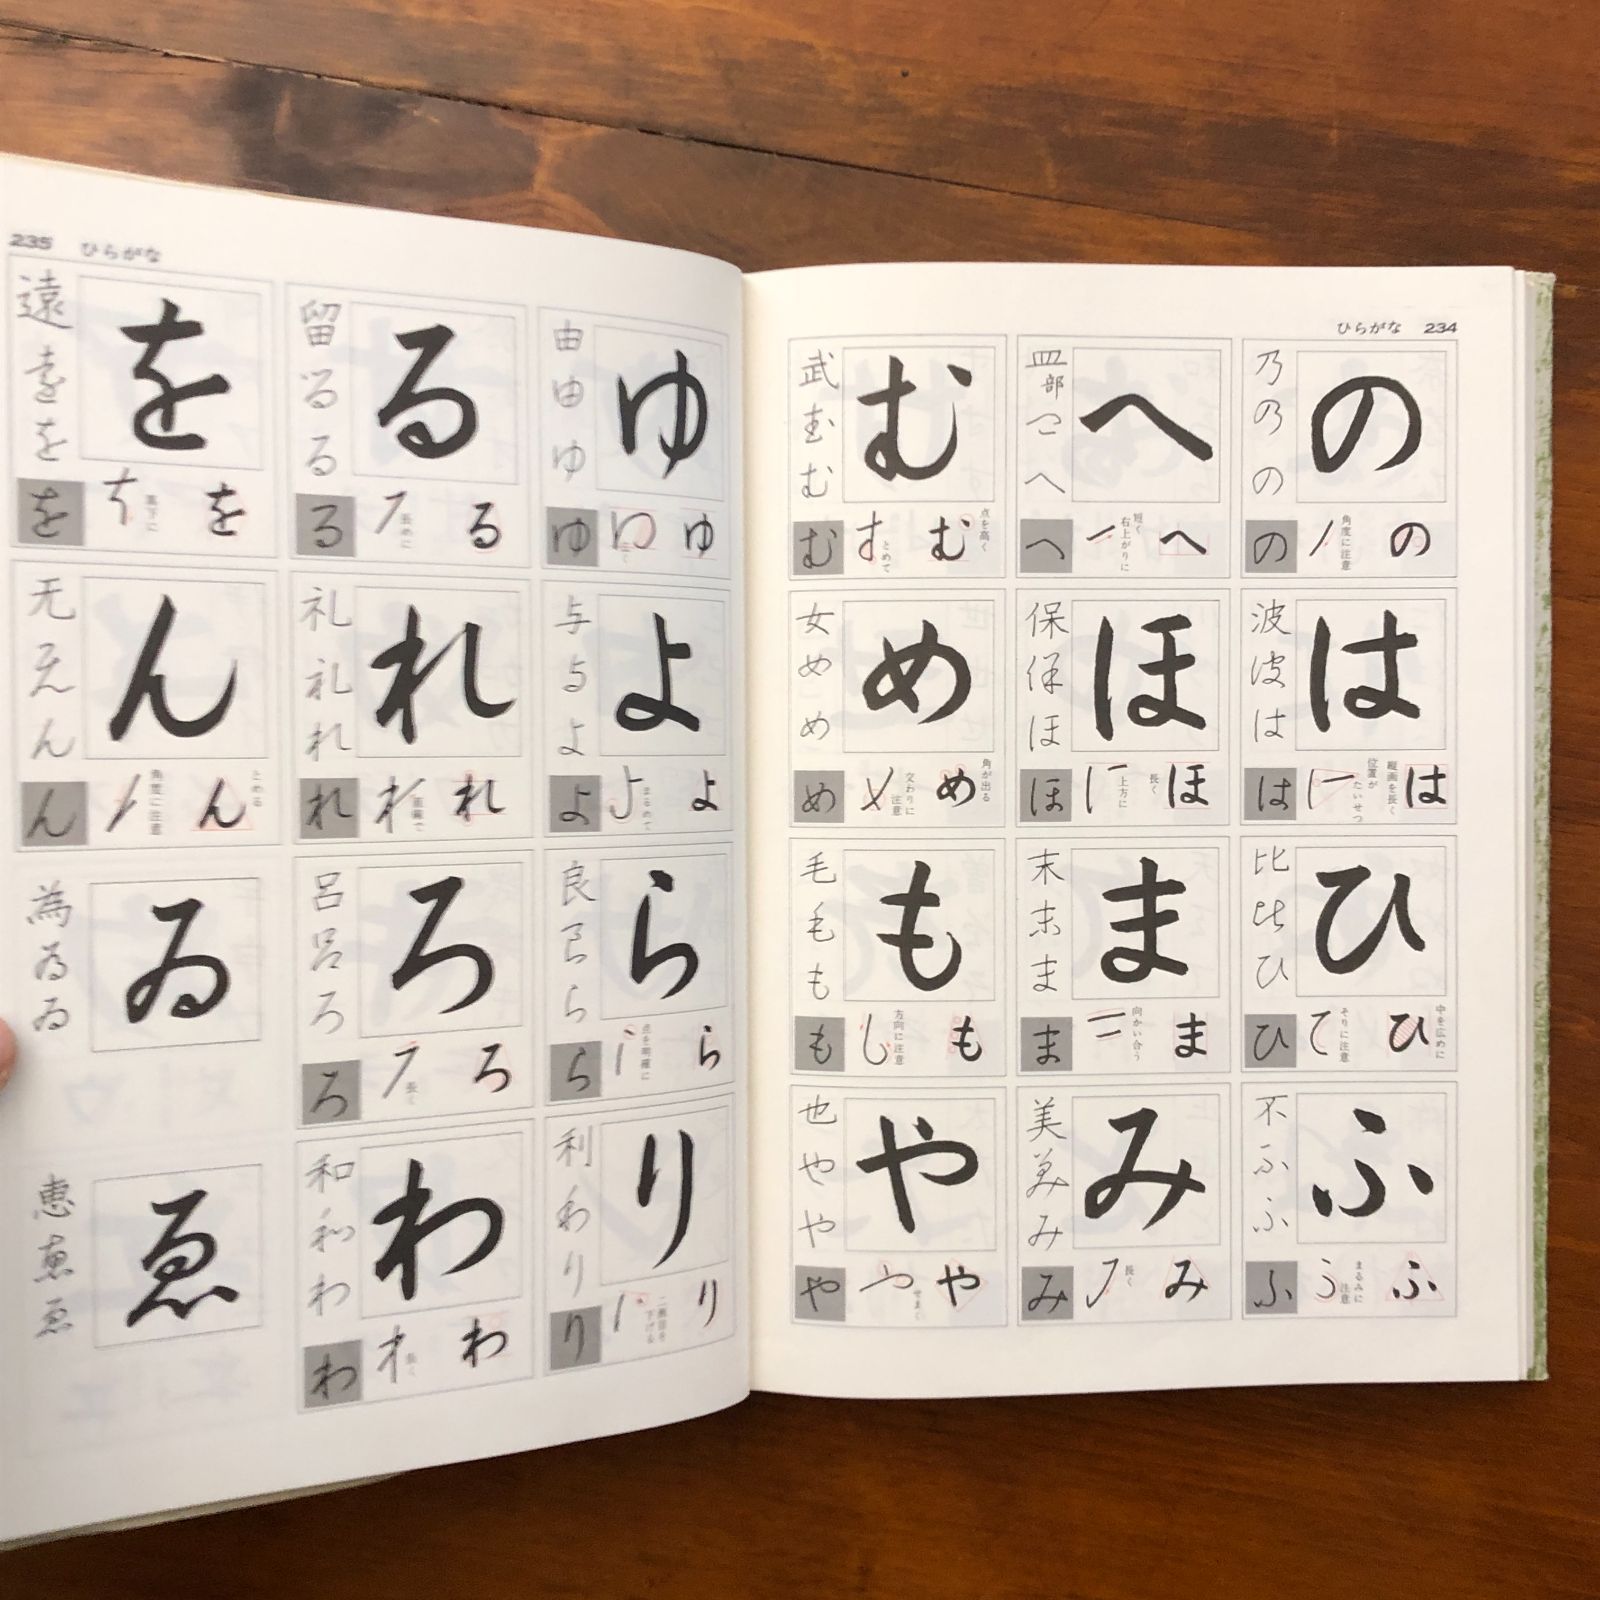 ひらがな 234
乃 乃 の
の
の 角度に注意 の
波 波 は
は
は 位置がたいせつ 縦画を長く は
比 比 ひ
ひ
ひ そりに注意 ひ 中を広めに
不 ふ ふ
ふ
ふ まるみに注意 ふ
皿部 へ
へ
へ 短く右上がりに へ
保 保 ほ
ほ
ほ 上方に 長く ほ
末 末 ま
ま
ま 向かい合う ま
美 美 み
み
み 長く み
武 武 む
む
む とめて む 点を高く
女 め め
め
め 交わりに注意 め 角が出る
毛 毛 も
も
も 方向に注意 も
也 や や
や
や せまく や
235 ひらがな
由 由 ゆ
ゆ
ゆ ゆ
与 与 よ
よ
よ まるめて よ
良 良 ら
ら
ら 点を明確に ら
利 り り
り
り 二画目を下げる り
留 る る
る
る 長めに る
礼 礼 れ
れ
れ 直線で れ
呂 呂 ろ
ろ
ろ 長く ろ
和 和 わ
わ
わ 長く わ
遠 遠 を
を
を 真下に を
无 无 ん
ん
ん 角度に注意 ん とめる
為 為 ゐ
ゐ
恵 恵 ゑ
ゑ